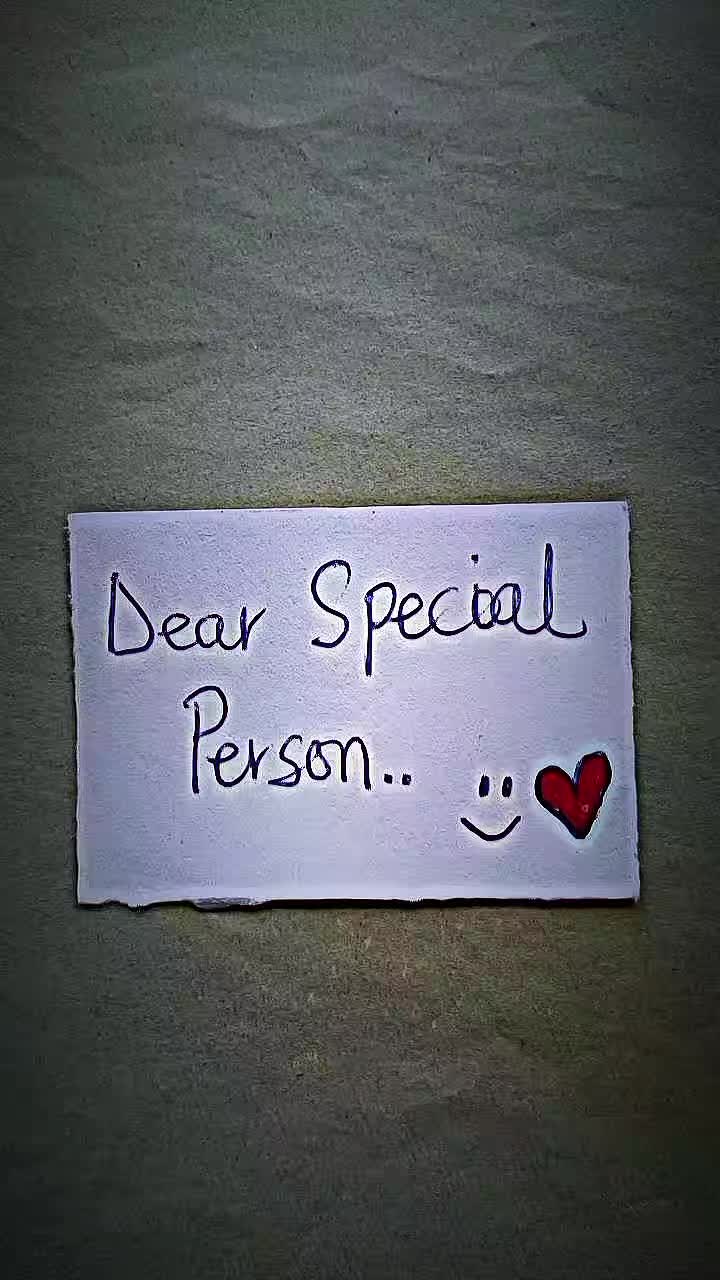 Dear Special
Person..